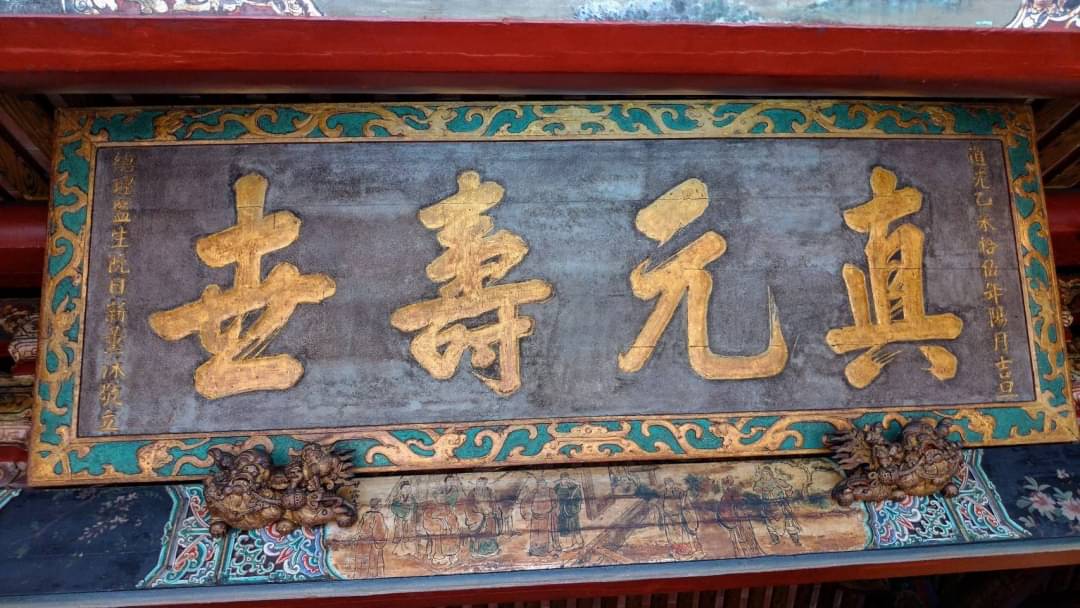 道光乙未拾伍年陽月吉旦
真元壽世
總理監生阮日新董沐敬立